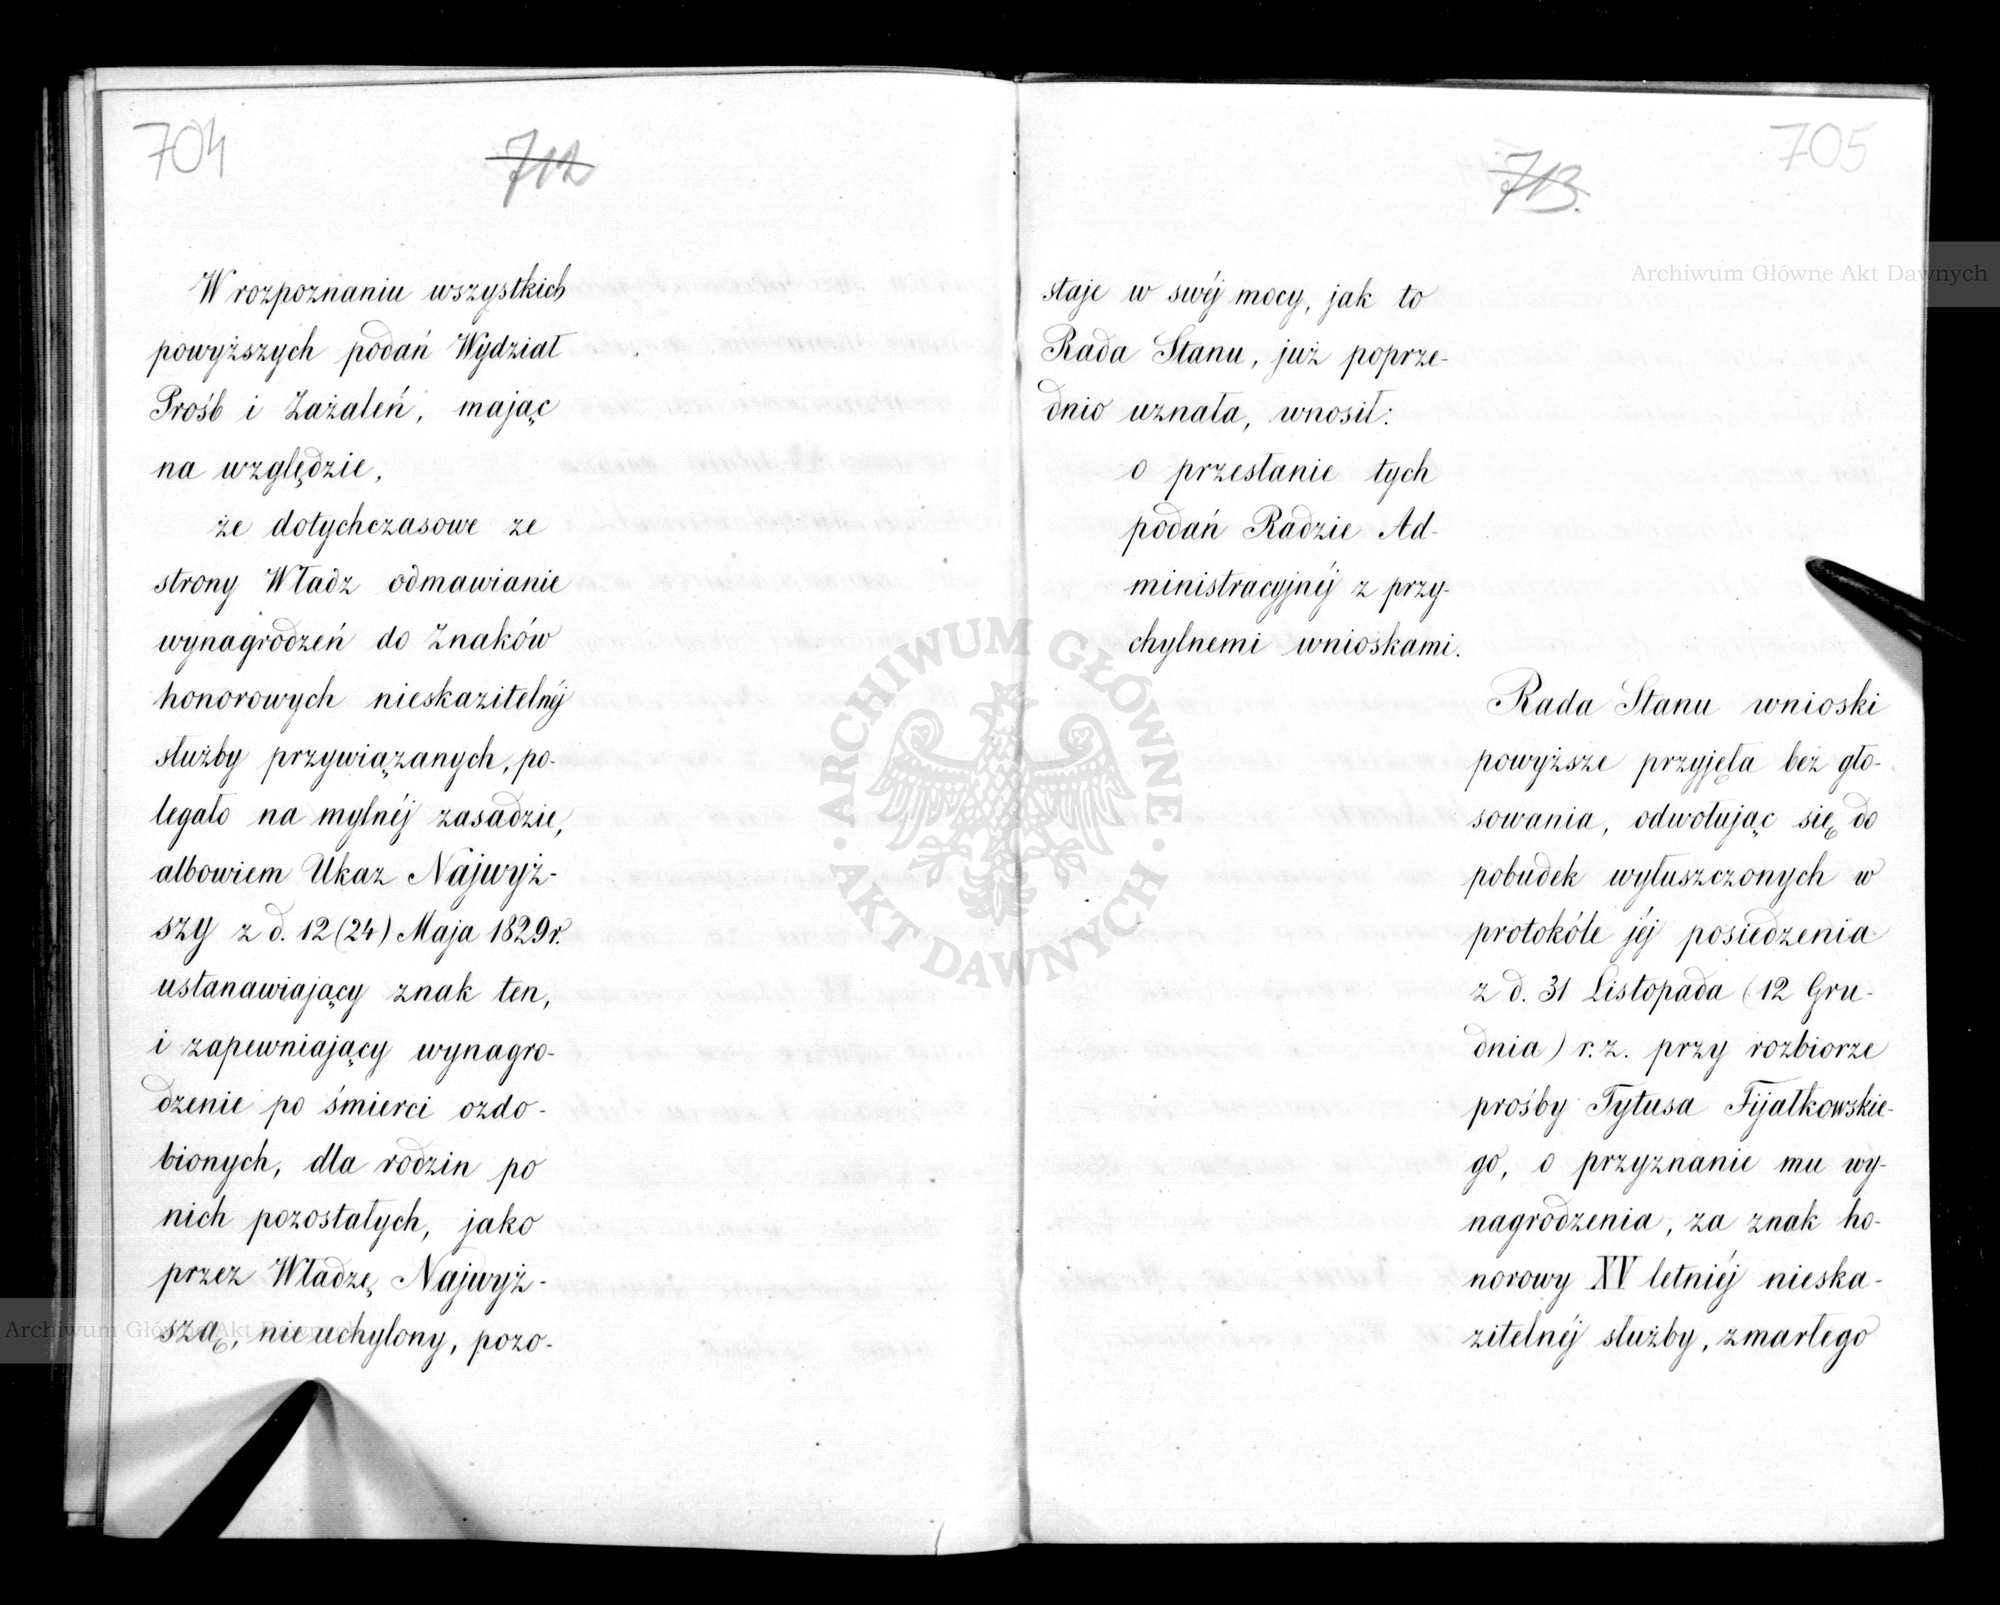 704
712
W rozpoznaniu wszystkich
powyższych podań Wydział
Próśb i Zażaleń, mając
na względzie,
że dotychczasowe ze
strony Władz odmawianie
wynagrodzeń do Znaków
honorowych nieskazitelnéj
służby przywiązanych, po-
legało na mylnéj zasadzie,
albowiem Ukaz Najwyż-
szy z d. 12 (24) Maja 1829 r.
ustanawiający znak ten,
i zapewniający wynagro-
dzenie po śmierci ozdo-
bionych, dla rodzin po
nich pozostałych, jako
przez Władzę Najwyż-
szą, nie uchylony, pozo-
705
713.
staje w swéj mocy, jak to
Rada Stanu, już poprze-
dnio uznała, wnosił:
o przesłanie tych
podań Radzie Ad-
ministracyjnéj z przy-
chylnemi wnioskami.
Rada Stanu wnioski
powyższe przyjęła bez gło-
sowania, odwołując się do
pobudek wyłuszczonych w
protokóle jéj posiedzenia
z d. 31 Listopada (12 Gru-
dnia) r. z. przy rozbiorze
prośby Tytusa Fijałkowskie-
go, o przyznanie mu wy-
nagrodzenia, za znak ho-
norowy XV letniéj nieska-
zitelnéj służby, zmarłego
Archiwum Główne Akt Dawnych
ARCHIWUM GŁÓWNE
AKT DAWNYCH
Archiwum Główne Akt Dawnych